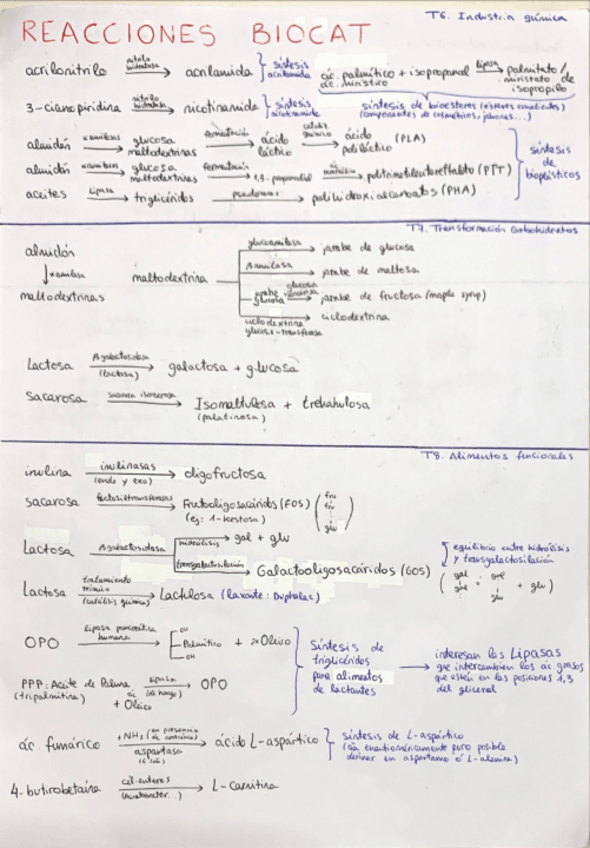 T6. Industria química
REACCIONES BIOCAT
acrilonitrilo nitrilo hidratasa → acrilamida } síntesis acrilamida
ác. palmítico + isopropanol lipasa → palmitato / miristato de isopropilo
ác. mirístico
3-cianopiridina nitrilo hidratasa → nicotinamida } síntesis nicotinamida
síntesis de bioésteres (ésteres emolientes)
(componentes de cosméticos, jabones...)
almidón αamilasas → glucosa maltodextrinas fermentación → ácido láctico → ácido poliláctico (PLA)
almidón αamilasas → glucosa maltodextrinas fermentación → 1,3-propanodiol → politrimetilentereftalato (PTT)
aceites lipasa → triglicéridos pseudomonas → polihidroxialcanoatos (PHA)
síntesis de bioplásticos
T7. Transformación Carbohidratos
almidón
↓ αamilasa
maltodextrinas
maltodextrina
glucoamilasa → jarabe de glucosa
βamilasa → jarabe de maltosa
jarabe glucosa glucosa isomerasa → jarabe de fructosa (maple syrup)
ciclodextrina glucosil-transferasa → ciclodextrina
Lactosa βgalactosidasa (lactasa) → galactosa + glucosa
Sacarosa sacarosa isomerasa → Isomaltulosa + trehalulosa
(palatinosa)
T8. Alimentos funcionales
inulina inulinasas (endo y exo) → oligofructosa
sacarosa fructosiltransferasas → Fructooligosacáridos (FOS) (fru fru glu)
(ej: 1-kestosa)
Lactosa βgalactosidasa
hidrólisis → gal + glu
transgalactosilación → Galactooligosacáridos (GOS)
equilibrio entre hidrólisis
y transgalactosilación
(gal gal + gal glu + glu)
Lactosa tratamiento térmico (catálisis química) → Lactulosa (laxante: Duphalac)
OPO lipasa pancreática humana → OH Palmítico OH + 2xOleico
PPP: Aceite de Palma lipasa (de hongo) → OPO
(tripalmitina) + ác Oleico
Síntesis de
triglicéridos
para alimentos
de lactantes
→ interesan las Lipasas
que intercambien los ác grasos
que estén en las posiciones 1,3
del glicerol
ác. fumárico +NH3 (en presencia de amoníaco) aspartasa (E. coli) → ácido L-aspártico } síntesis de L-aspártico
enantioméricamente puro posible
derivar en aspartamo ó L-alanina)
4-butirobetaína cel. enteras → L-carnitina